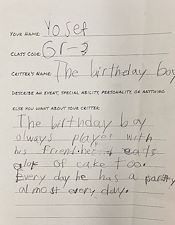 YOUR NAME: Yosef
CLASS CODE: Gr-2
CRITTER'S NAME: The birthday boy
DESCRIBE AN EVENT, SPECIAL ABILITY, PERSONALITY, OR ANYTHING
ELSE YOU WANT ABOUT YOUR CRITTER:
The birthday boy
always player with
his friend. eats
alot of cake too.
Every day he has a party
almost every day.